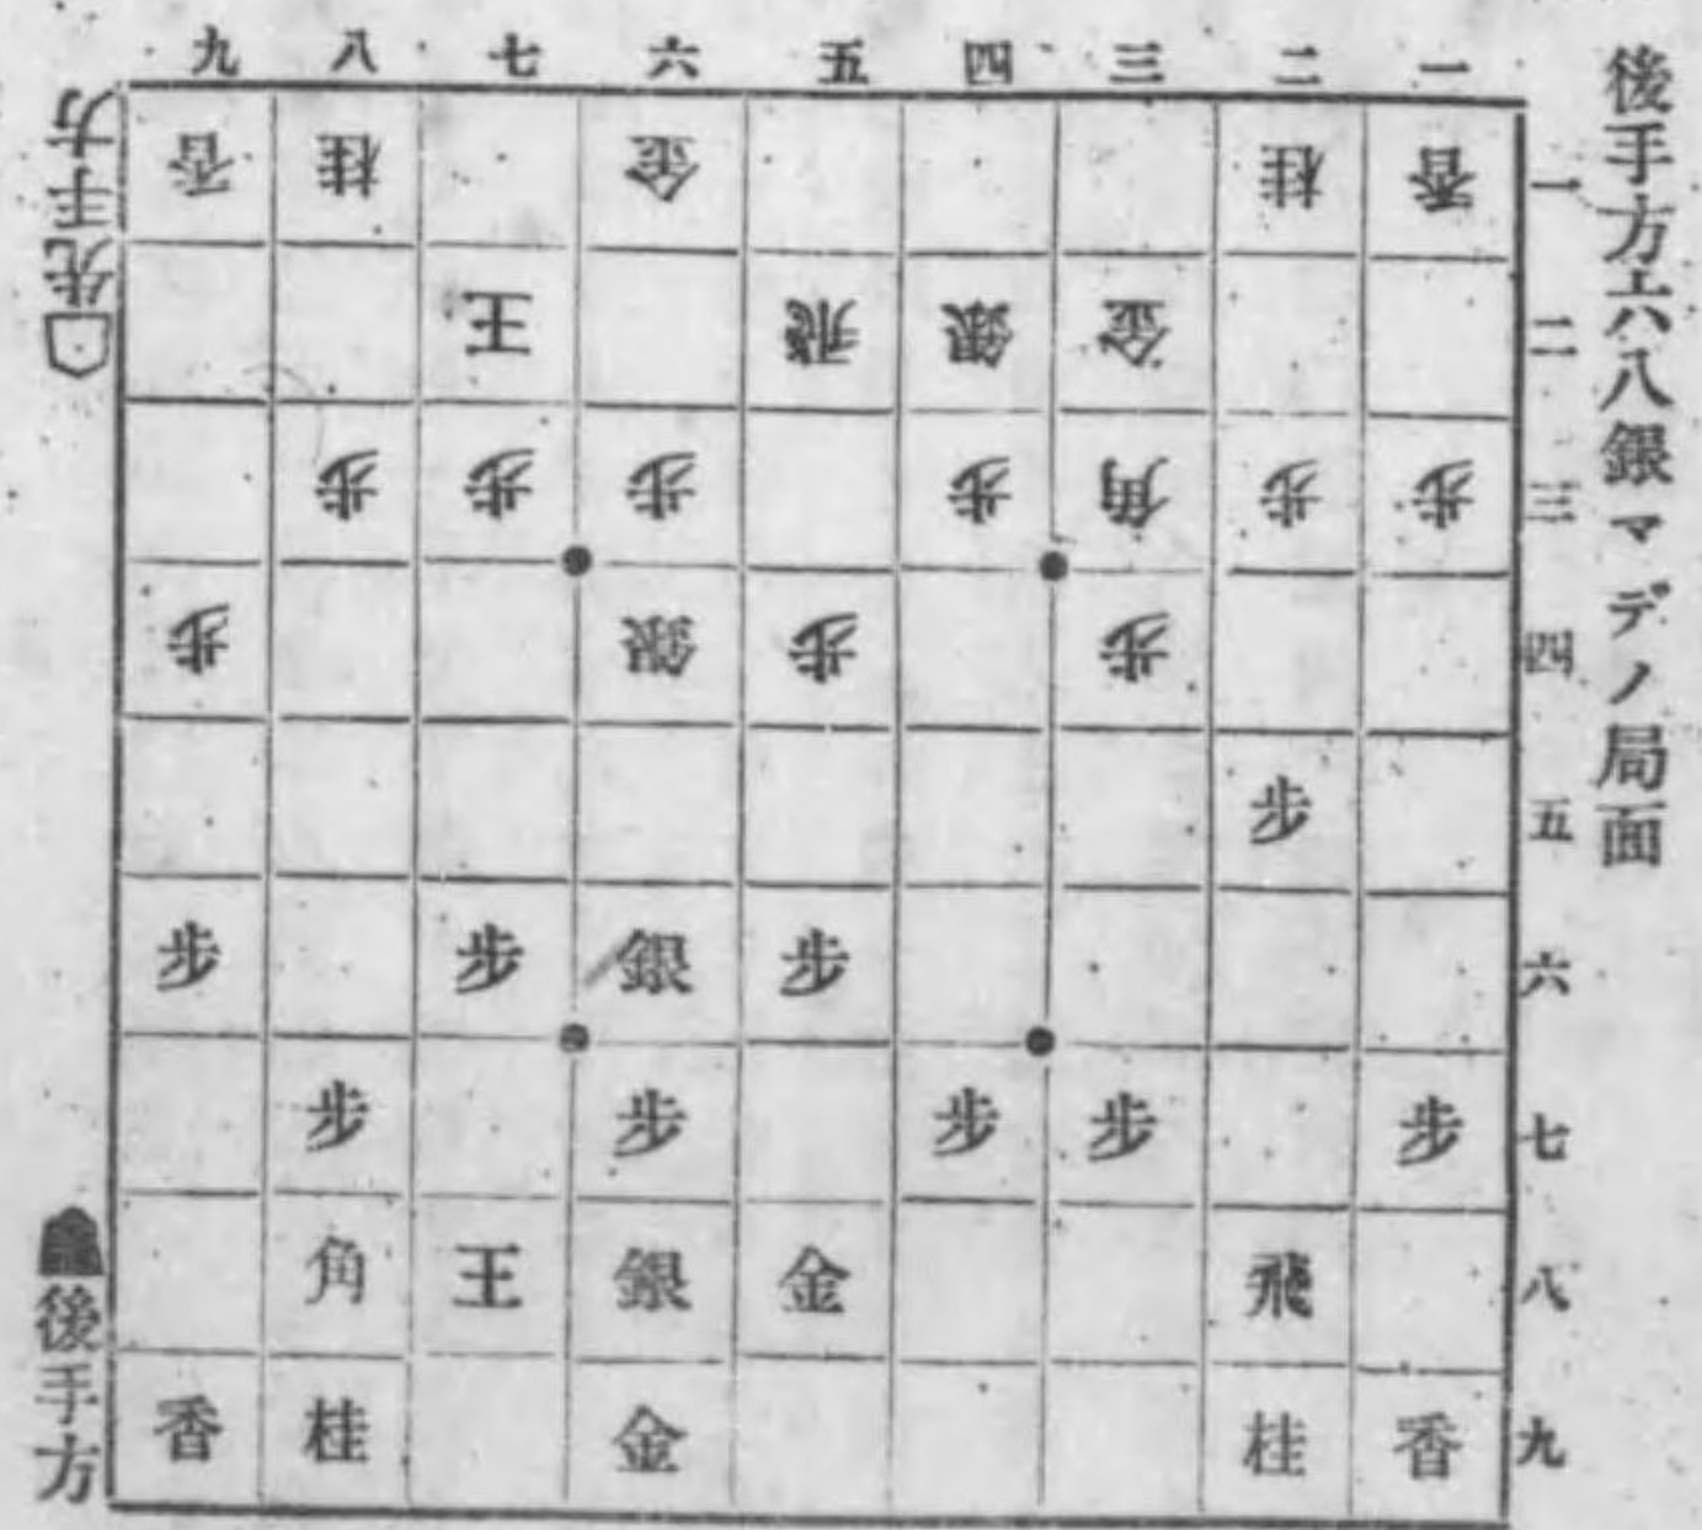 後手方六八銀マデノ局面
九 八 七 六 五 四 三 二 一
香 桂 金 桂 香 一
王 飛 銀 金 二
歩 歩 歩 歩 角 歩 歩 三
歩 銀 歩 歩 四
歩 五
歩 歩 銀 歩 六
歩 歩 歩 歩 歩 七
角 王 銀 金 飛 八
香 桂 金 桂 香 九
先手方
後手方